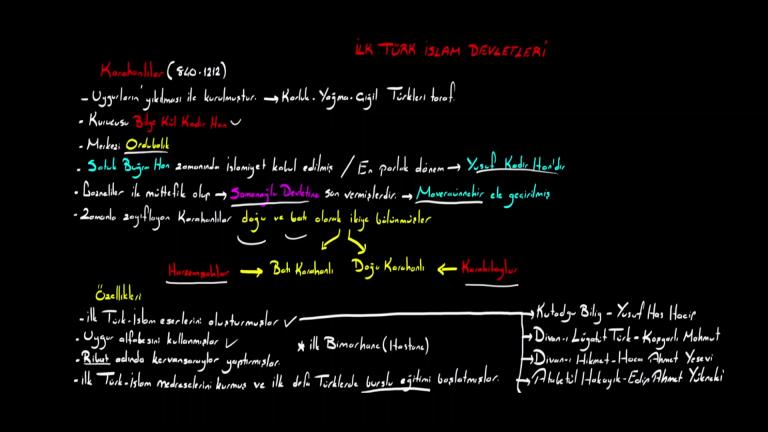 İLK TÜRK İSLAM DEVLETLERİ
Karahanlılar (840-1212)
- Uygurların yıkılması ile kurulmuştur. → Karluk-Yağma-Çiğil Türkleri taraf.
- Kurucusu Bilge Kül Kadir Han
- Merkezi Ordubalık
- Satuk Buğra Han zamanında islamiyet kabul edilmiş / En parlak dönem → Yusuf Kadir Han'dır
- Gazneliler ile müttefik olup → Samanoğlu Devletine son vermişlerdir. → Maveraünnehir ele geçirilmiş
- Zamanla zayıflayan Karahanlılar doğu ve batı olarak ikiye bölünmüşler
Harzemşahlar → Batı Karahanlı Doğu Karahanlı ← Karahitaylar
Özellikleri
- ilk Türk-İslam eserlerini oluşturmuşlar → Kutadgu Bilig - Yusuf Has Hacip
- Uygur alfabesini kullanmışlar * ilk Bimarhane (Hastane) → Divan-ı Lügatit Türk - Kaşgarlı Mahmut
- Ribat adında kervansaraylar yaptırmışlar. → Divan-ı Hikmet - Hoca Ahmet Yesevi
- ilk Türk-İslam medreselerini kurmuş ve ilk defa Türklerde burslu eğitimi başlatmışlar. → Atabetül Hakayık - Edip Ahmet Yükneki